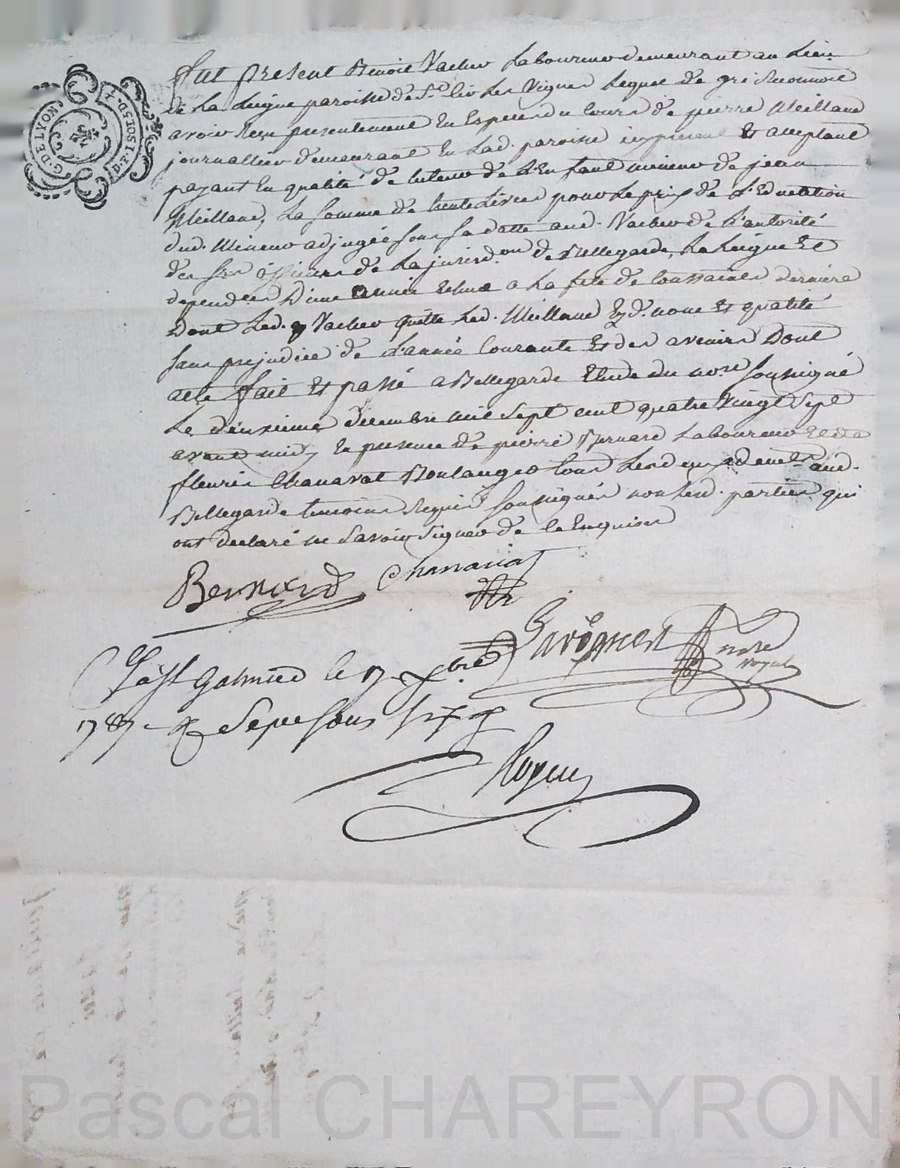 fut present Benoit Vacher Laboureur demeurant au Lieu
de La Luigue paroisse de St. Cir Les Vignes Lequel de gré Reconnoit
avoir Reçu presentement En Especes du Cours de pierre Meilland
journallier demeurant En Lad. paroisse icy present Et acceptant
payant En qualité de tuteur de L'Enfant mineur de jean
Meilland, La somme de trente Livres pour Le prix de L'Education
dud. Mineur adjugée sous sa datte aud. Vacher de L'autorité
des srs officiers de La jurisd.on de Bellegarde, La Luigue Et
dependces D'une année Echue a La fete de toussaints derniere
Dont Led. Vacher quitte Led. Meilland Esd. noms Et qualité
sans prejudice de L'année Courante Et des avenirs Dont
acte fait Et passé a Bellegarde Etude du nore soussigné
Le deuxieme decembre mil sept cent quatre vingt sept
avant midy En presence de pierre Bernard Laboureur Et de
fleurie Chanavat Boulanger tous deux aud.
Bellegarde temoins Requis soussignés non Lesd. parties qui
ont declaré ne savoir signer de ce Enquises
Bernard Chanavat
nore
royal
à St Galmier le 17 xbre
1787 R Sept sous six d